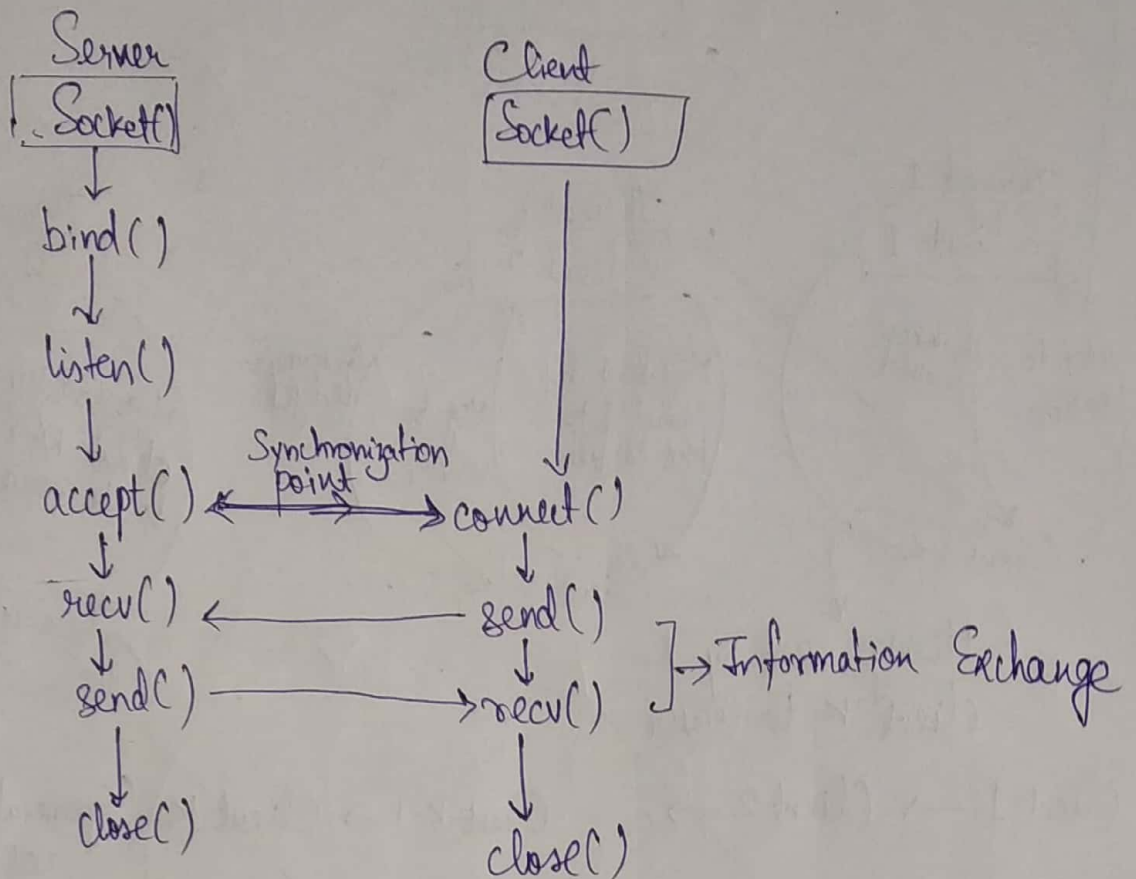 Server
Socket()
bind()
listen()
accept()
recv()
send()
close()
Synchronization
point
Client
Socket()
connect()
send()
recv()
close()
Information Exchange